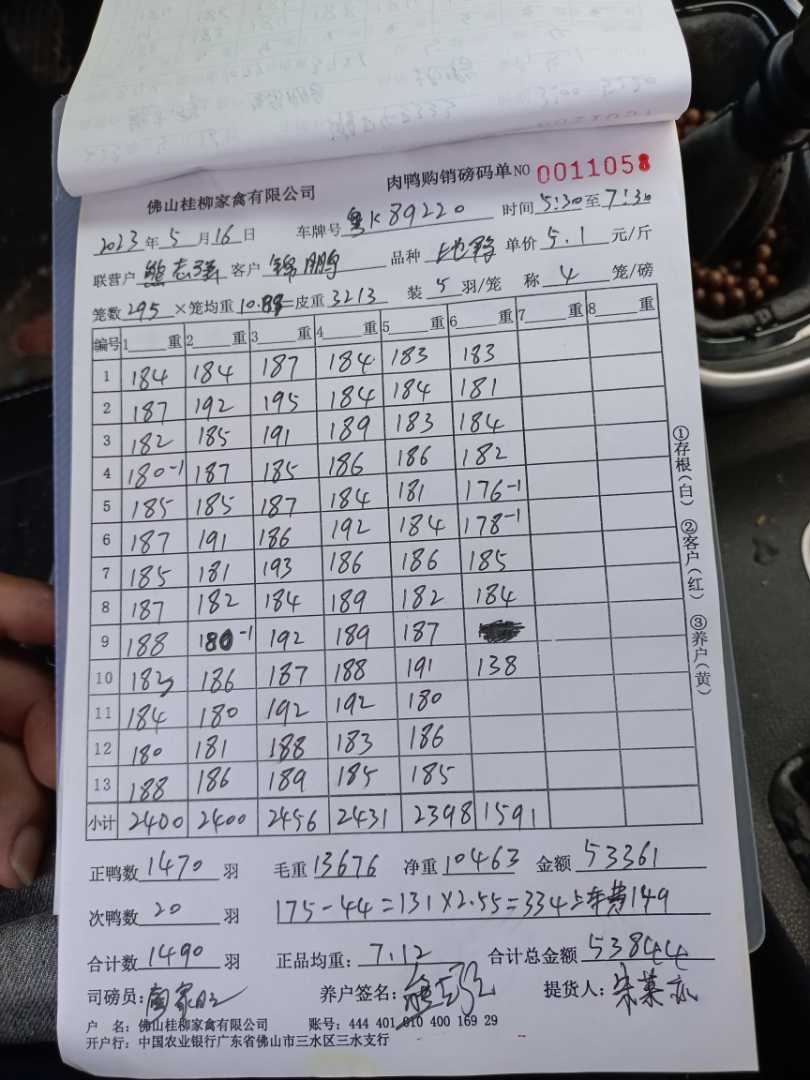 佛山桂柳家禽有限公司 肉鸭购销磅码单NO 0011058
2023年5月16日 车牌号粤K89220 时间5:30至7:30
联营户熊志强 客户锦鹏 品种 单价5.1元/斤
笼数295×笼均重10.89=皮重3213 装5羽/笼 称4笼/磅
编号 1重 2重 3重 4重 5重 6重 7重 8重
1 184 184 187 184 183 183
2 187 192 195 184 184 181
3 182 185 191 189 183 184
4 180-1 187 185 186 186 182
5 185 185 187 184 181 176-1
6 187 191 186 192 184 178-1
7 185 181 193 186 186 185
8 187 182 184 189 182 184
9 188 180-1 192 189 187
10 182 186 187 188 191 138
11 184 180 192 192 180
12 180 181 188 183 186
13 188 186 189 185 185
小计 2400 2400 2456 2431 2398 1591
正鸭数1470羽 毛重13676 净重10463 金额53361
次鸭数20羽 175-44=131×2.55=334上车费149
合计数1490羽 正品均重:7.12 合计总金额53844
司磅员: 养户签名: 提货人:
户 名:佛山桂柳家禽有限公司 账号:444 401 010 400 169 29
开户行:中国农业银行广东省佛山市三水区三水支行
①存根(白) ②客户(红) ③养户(黄)